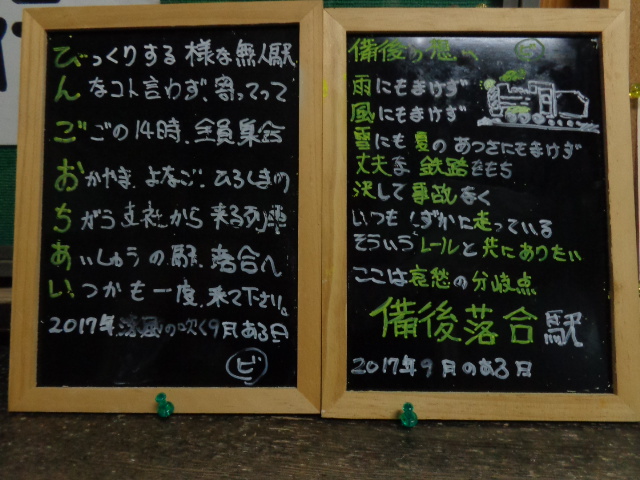 びっくりする様な無人駅
んなコト言わず、寄ってって
ごごの14時、全員集合
おかやま、よなご、ひろしまの
ちがう支社から来る列車
あいしゅうの駅、落合へ
いつかも一度、乗て下さい。
2017年 涼風の吹く9月ある日
ビ
備後の想い
ビ
雨にもまけず
風にもまけず
雪にも夏のあつさにもまけず
丈夫な鉄路をもち
決して事故なく
いつもしずかに走っている
そういうレールと共にありたい
ここは哀愁の分岐点
備後落合駅
2017年9月のある日